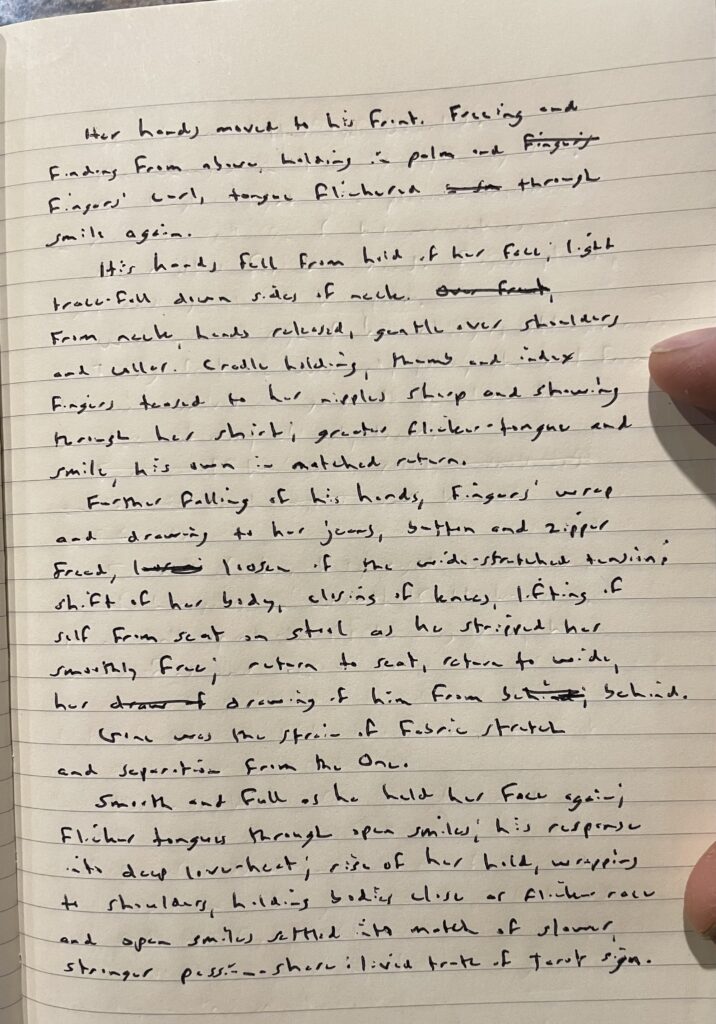 Her hands moved to his front. Freeing and
finding from above, holding in palm and fingers
fingers' curl, tongue flickered through
smile again.
His hands fell from hold of her face; light
trace-fall down sides of neck. Over front,
From neck, hands released, gentle over shoulders
and collar. Cradle holding, thumb and index
fingers teased to her nipples sharp and showing
through her shirt; greater flicker-tongue and
smile, his own in matched return.
Further falling of his hands, fingers' wrap
and drawing to her jeans, button and zipper
freed, loosen of the wide-stretched tension;
shift of her body, closing of knees, lifting of
self from seat on stool as he stripped her
smoothly free; return to seat, return to wide,
her draw of drawing of him from behind; behind.
Gone was the strain of fabric stretch
and separation from the One.
Smooth and full as he held her face again;
flicker tongues through open smiles; his response
into deep lover-heat; rise of her hold, wrapping
to shoulders, holding bodies close as flicker race
and open smiles settled into match of slower,
stronger passion-share: lived trate of Tarot sign.